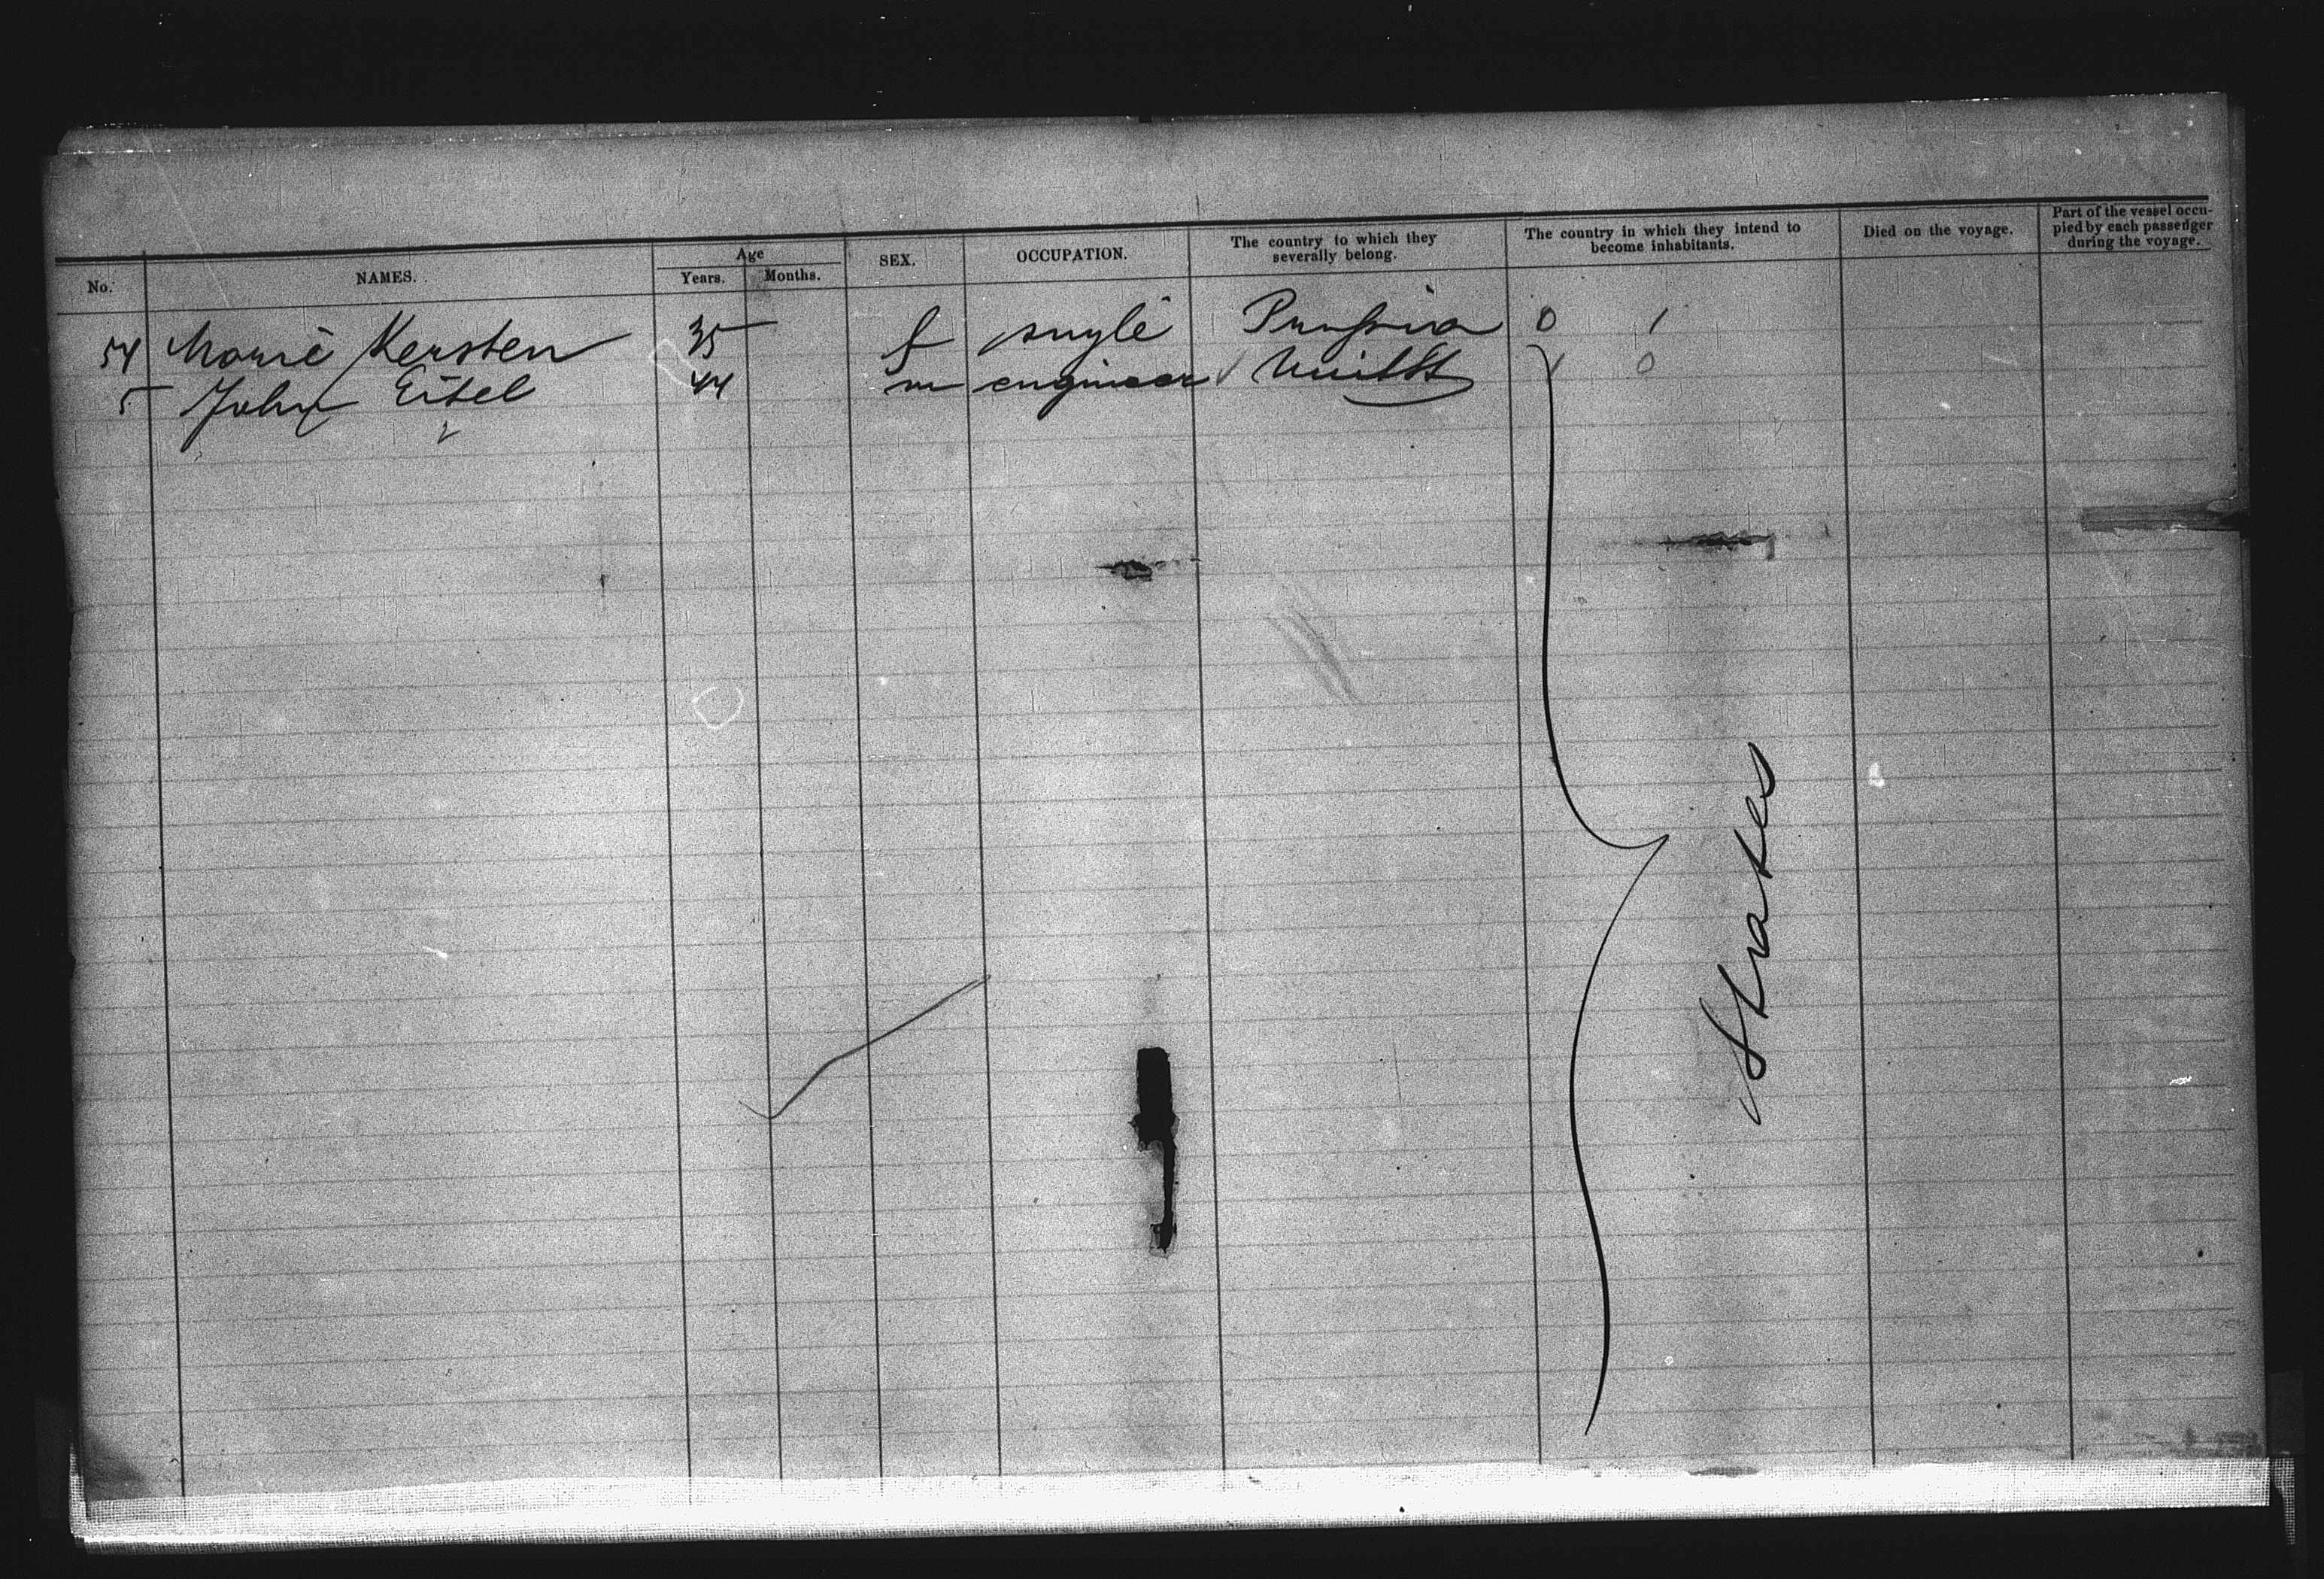 No. NAMES. Age Years. Months. SEX. OCCUPATION. The country to which they severally belong. The country in which they intend to become inhabitants. Died on the voyage. Part of the vessel occupied by each passenger during the voyage.
54 Marie Kersten 35 f single Prussia 0 1
5 John Eitel 44 m engineer UnitSt 1 0
States